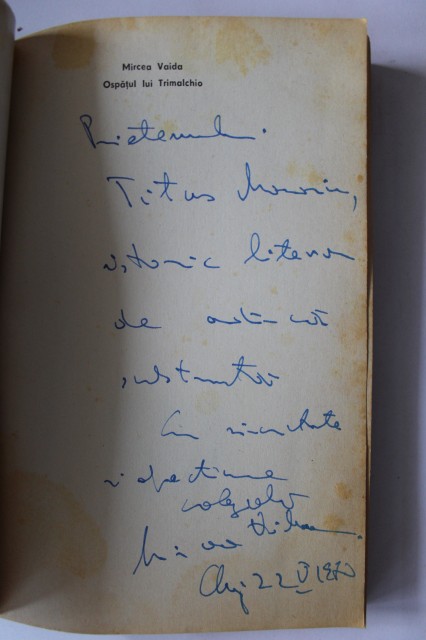 Mircea Vaida
Ospățul lui Trimalchio
Prietenului
Titus Moraru,
istoric literar
de autentică
substanță
Cu sinceritate
și afecțiune
colegială
Mircea
Cluj 22 V 1970